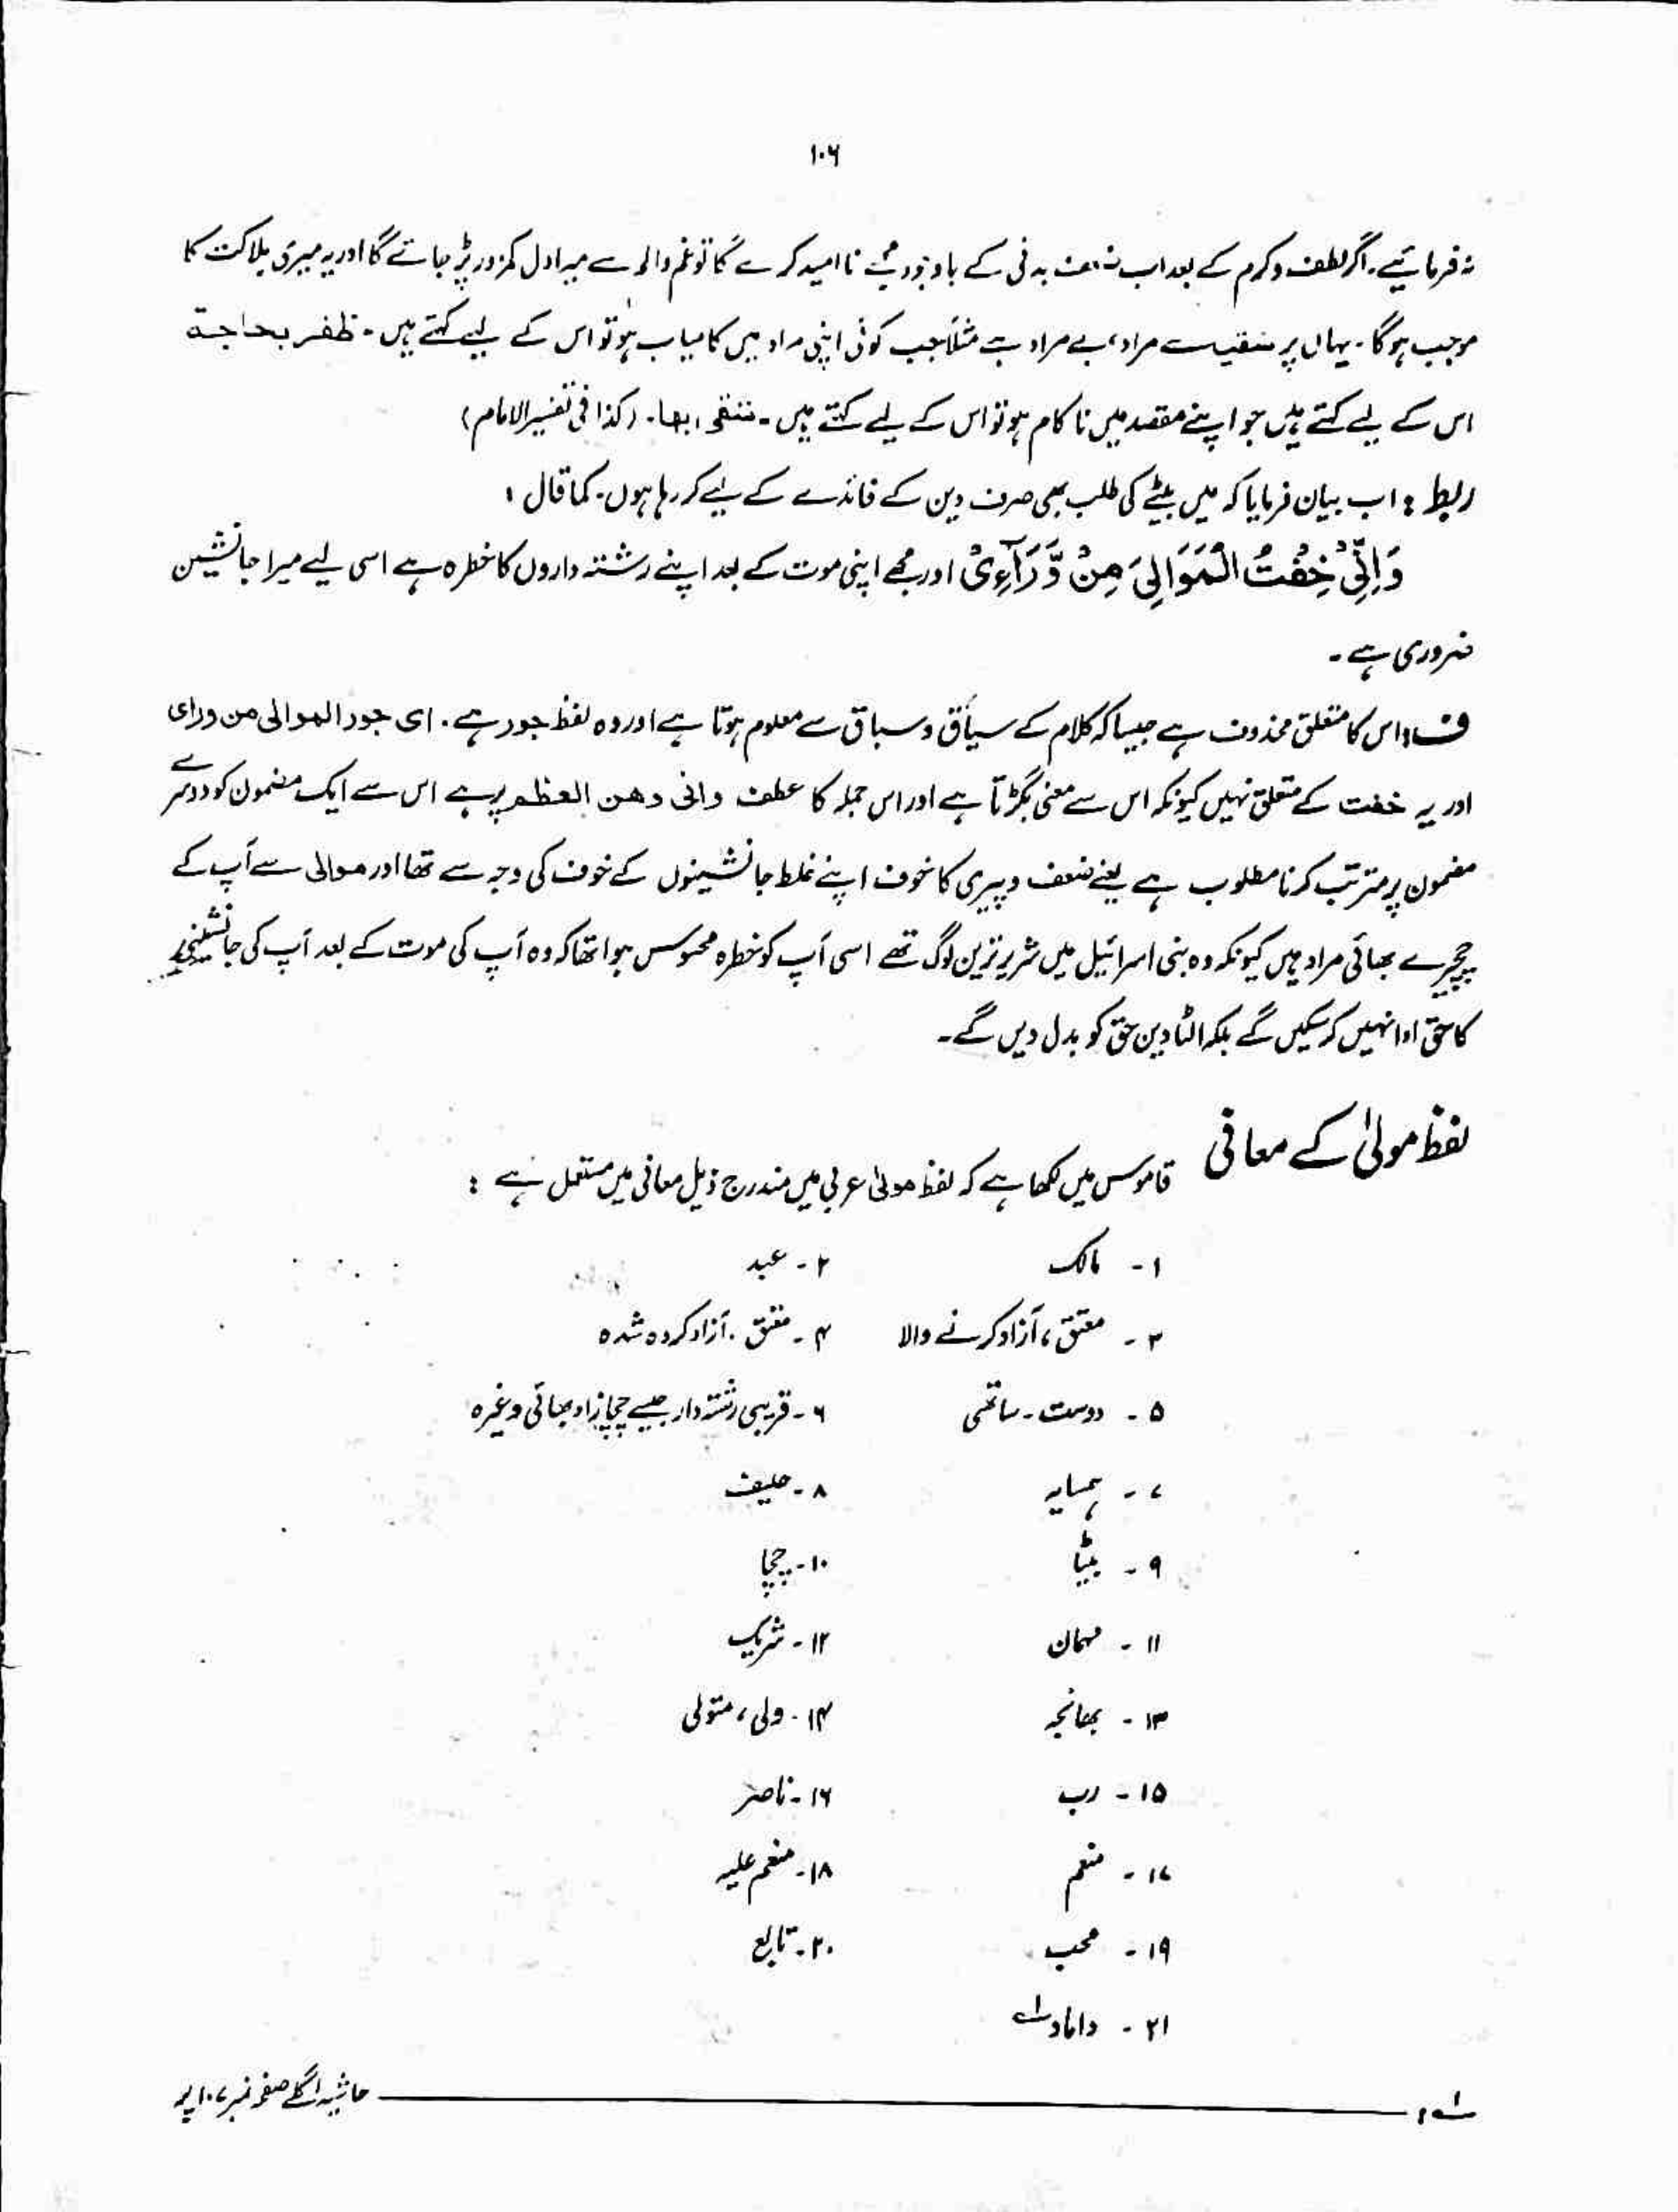 ۱۰۶
نہ فرمائیے۔ اگر لطف و کرم کے بعد اب ضعف بدنی کے باوجود مجھے ناامید کرے گا تو غم والم سے میرا دل کمزور پڑ جائے گا اور یہ میری ہلاکت کا
موجب ہوگا۔ یہاں پر شقی سے مراد، بے مراد ہے مثلاً جب کوئی اپنی مراد میں کامیاب ہو تو اس کے لیے کہتے ہیں۔ ظفر بحاجة
اس کے لیے کہتے ہیں جو اپنے مقصد میں ناکام ہو تو اس کے لیے کہتے ہیں۔ شقی بہا۔ (کذا فی تفسیر الامام)
ربط: اب بیان فرمایا کہ میں بیٹے کی طلب بھی صرف دین کے فائدے کے لیے کر رہا ہوں۔ کما قال:
وَاِنِّیْ خِفْتُ الْمَوَالِیَ مِنْ وَّرَآءِیْ اور مجھے اپنی موت کے بعد اپنے رشتہ داروں کا خطرہ ہے اسی لیے میرا جانشین
ضروری ہے۔
ف: اس کا متعلق محذوف ہے جیسا کہ کلام کے سیاق و سباق سے معلوم ہوتا ہے اور وہ لفظ جور ہے۔ ای جور الموالی من ورای
اور یہ خفت کے متعلق نہیں کیونکہ اس سے معنی بگڑتا ہے اور اس جملہ کا عطف وانی وھن العظم پر ہے اس سے ایک مضمون کو دوسرے
مضمون پر مترتب کرنا مطلوب ہے یعنے ضعف و پیری کا خوف اپنے غلط جانشینوں کے خوف کی وجہ سے تھا اور موالی سے آپ کے
چچیرے بھائی مراد ہیں کیونکہ وہ بنی اسرائیل میں شریر ترین لوگ تھے اسی آپ کو خطرہ محسوس ہوا تھا کہ وہ آپ کی موت کے بعد آپ کی جانشینی
کا حق ادا نہیں کر سکیں گے بلکہ الٹا دین حق کو بدل دیں گے۔
لفظ مولیٰ کے معانی
قاموس میں لکھا ہے کہ لفظ مولیٰ عربی میں مندرج ذیل معانی میں مستعمل ہے:
۱۔ مالک ۲۔ عبد
۳۔ معتق، آزاد کرنے والا ۴۔ معتق۔ آزاد کردہ شدہ
۵۔ دوست۔ ساتھی ۶۔ قریبی رشتہ دار جیسے چچا زاد بھائی وغیرہ
۷۔ ہمسایہ ۸۔ حلیف
۹۔ بیٹا ۱۰۔ چچا
۱۱۔ مہمان ۱۲۔ شریک
۱۳۔ بھانجہ ۱۴۔ ولی، متولی
۱۵۔ رب ۱۶۔ ناصر
۱۷۔ منعم ۱۸۔ منعم علیہ
۱۹۔ محب ۲۰۔ تابع
۲۱۔ داماد ؂۱
؂۱: حاشیہ اگلے صفحہ نمبر ۱۰۷ پر